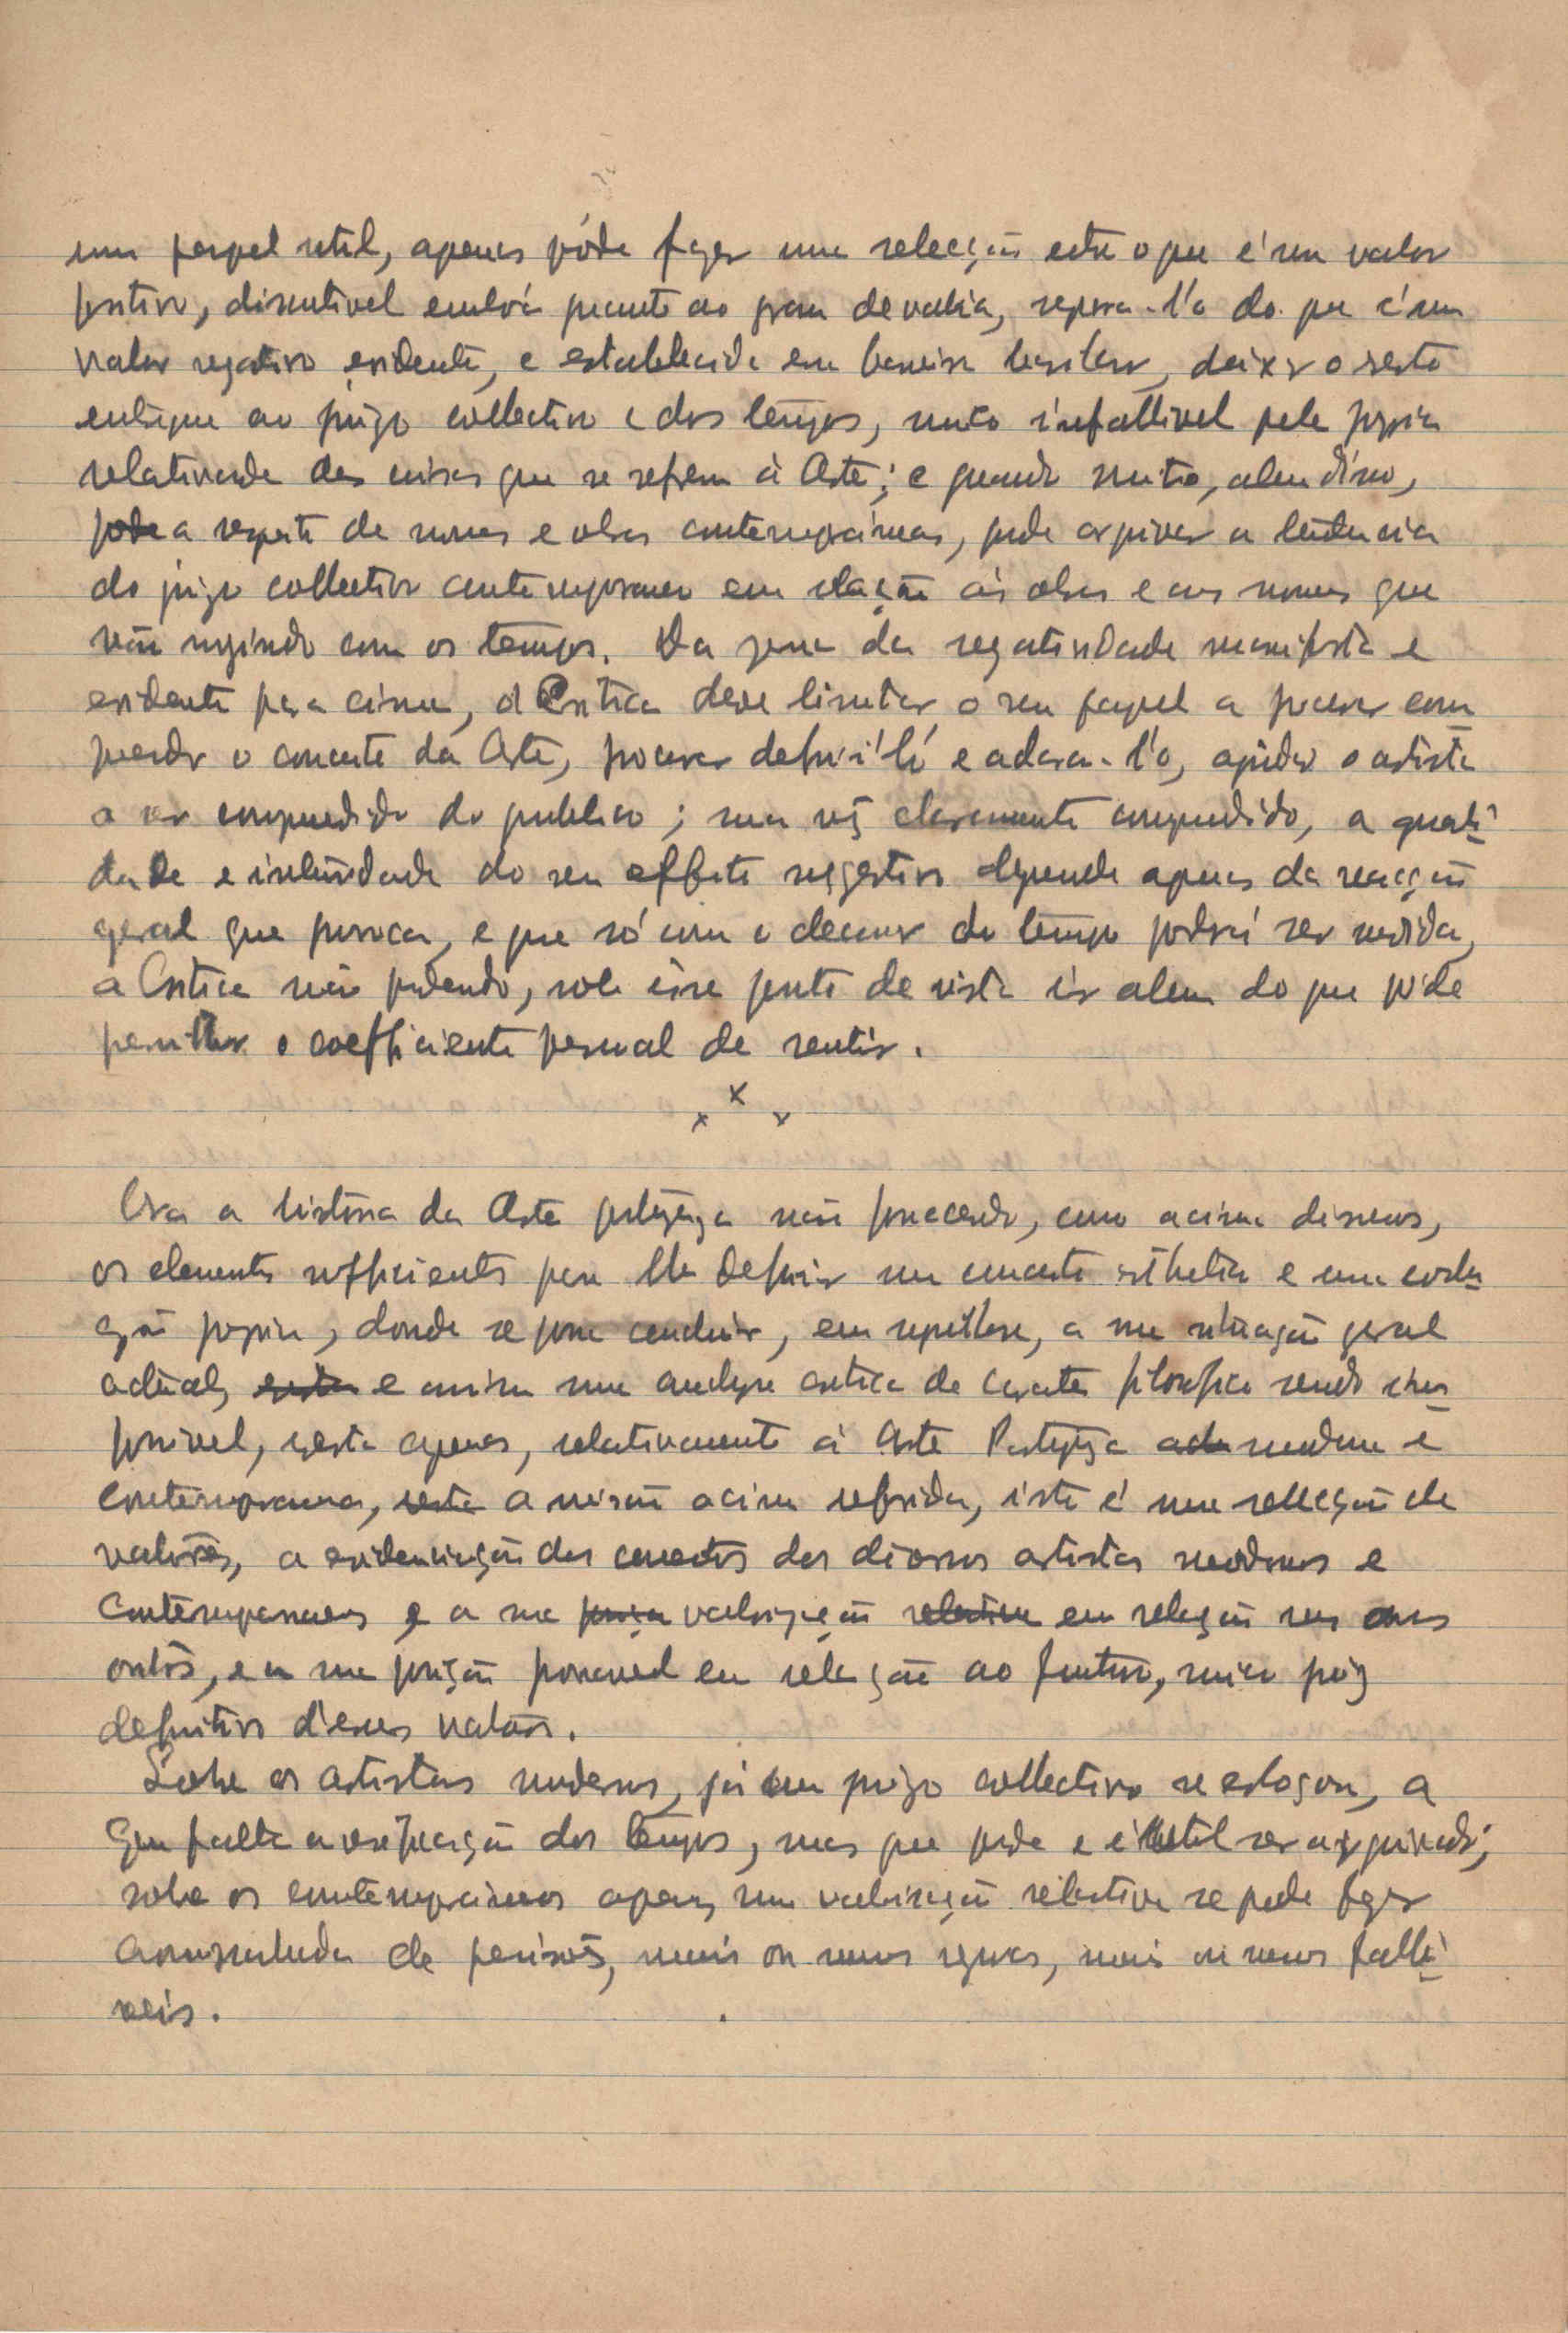 um papel util, apenas póde fazer uma selecção entre o que é um valor
positivo, discutivel embóra quanto ao grau de valia, separa-l'o do que é um
valor negativo evidente, e estabelecida essa barreira basilar, deixar o resto
entregue ao juizo collectivo e dos tempos, unico infallivel pela propria
relatividade das coisas que se referem á Arte; e quando muito, alem disso,
pode a respeito de nomes e obras contemporaneas, pode arquivar a tendencia
do juizo collectivo contemporaneo em relação ás obras e aos nomes que
vão surgindo com os tempos. Da zona da negatividade manifesta e
evidente para cima, a Critica deve limitar o seu papel a procurar com
prender o conceito da Arte, procurar defini-l'o e aclara-l'o, ajudar o artista
a ser comprendido do publico; uma vez claramente comprendido, a quali-
dade e intensidade do seu effeito suggestivo depende apenas da reacção
geral que provoca, e que só com o decorrer do tempo poderá ser medida,
a Critica não podendo, sob esse ponto de vista ir alem do que póde
permittir o coefficiente pessoal de sentir.
x x x
Ora a história da Arte portugueza não fornecendo, como acima dissemos,
os elementos sufficientes para lhe definir um conceito esthetico e uma evolu-
ção propria, donde se possa concluir, em synthese, a sua situação geral
actual, e assim uma analyse critica de caracter filosofico sendo im-
possivel, resta apenas, relativamente á Arte Portugueza moderna e
contemporanea, a missão acima referida, isto é uma selecção de
valores, a evidenciação dos conceitos dos diversos artistas modernos e
contemporaneos e a sua valorização em relação uns aos
outros, e a sua posição provavel em relação ao futuro, unico juiz
definitivo d'esses valores.
Sobre os artistas modernos, já um juizo collectivo se esboçou, a
que falta a verificação dos tempos, mas que pode e é util ser arquivado;
sobre os contemporaneos apenas uma valorisação relativa se pode fazer
acompanhada de previsões, mais ou menos seguras, mais ou menos falli-
veis.